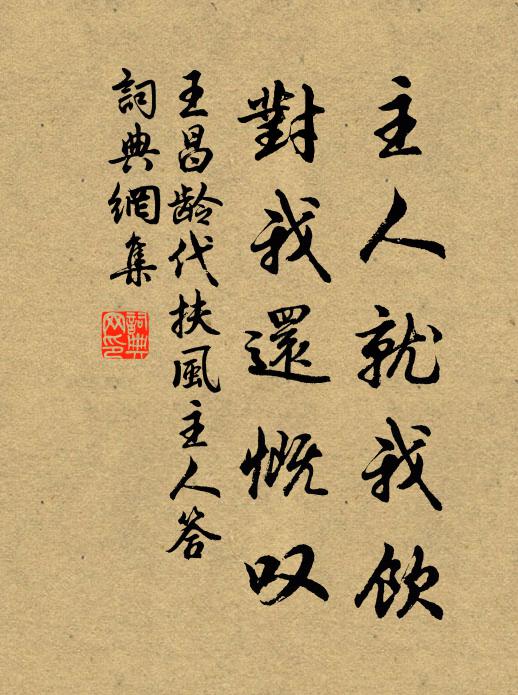 主人就我飲
對我還慨叹
王昌龄代扶風主人答
詞典網集
詞典网印